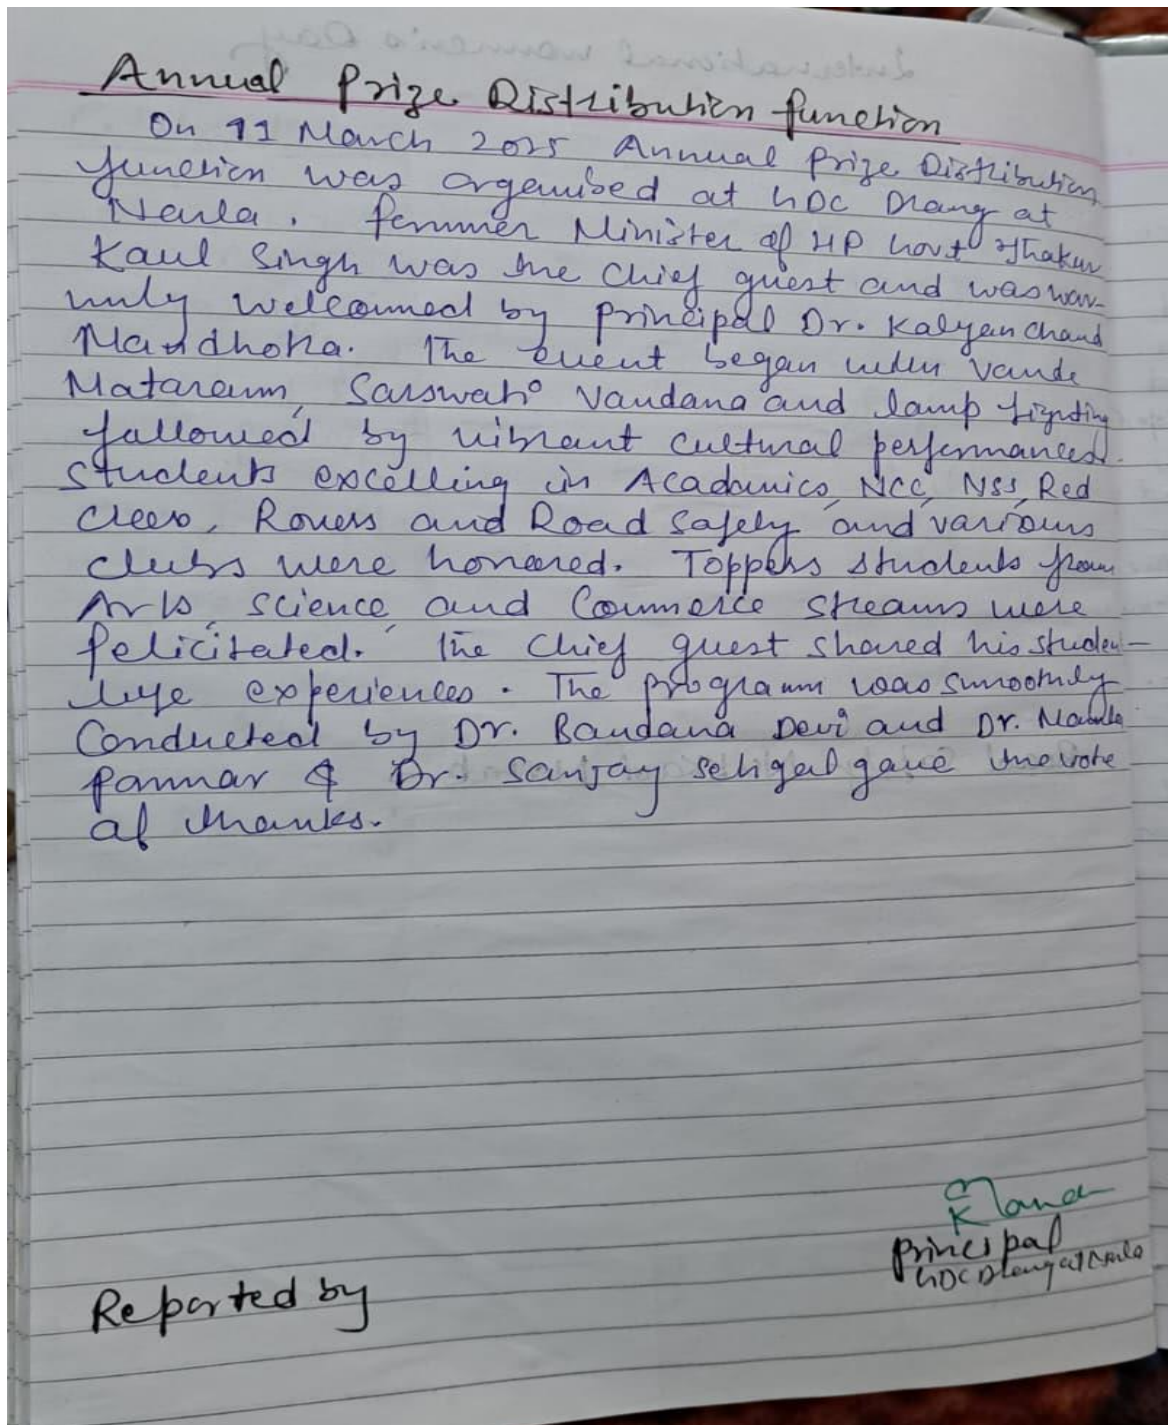 Annual Prize Distribution function
On 11 March 2025 Annual Prize Distribution
function was organised at GDC Drang at
Narla. Former Minister of HP Govt Thakur
Kaul Singh was the Chief guest and was war-
mly welcomed by Principal Dr. Kalyan Chand
Mandhotra. The event began with Vande
Mataram, Sarswati Vandana and lamp lighting
followed by vibrant cultural performances.
Students excelling in Academics, NCC, NSS, Red
Cross, Rovers and Road Safety and various
clubs were honored. Toppers students from
Arts, Science, and Commerce streams were
felicitated. The Chief guest shared his studen-
life experiences. The programm was smoothly
Conducted by Dr. Bandana Devi and Dr.
Parmar & Dr. Sanjay Sehgal gave the vote
of thanks.
Principal
GDC Drang at Narla
Reported by